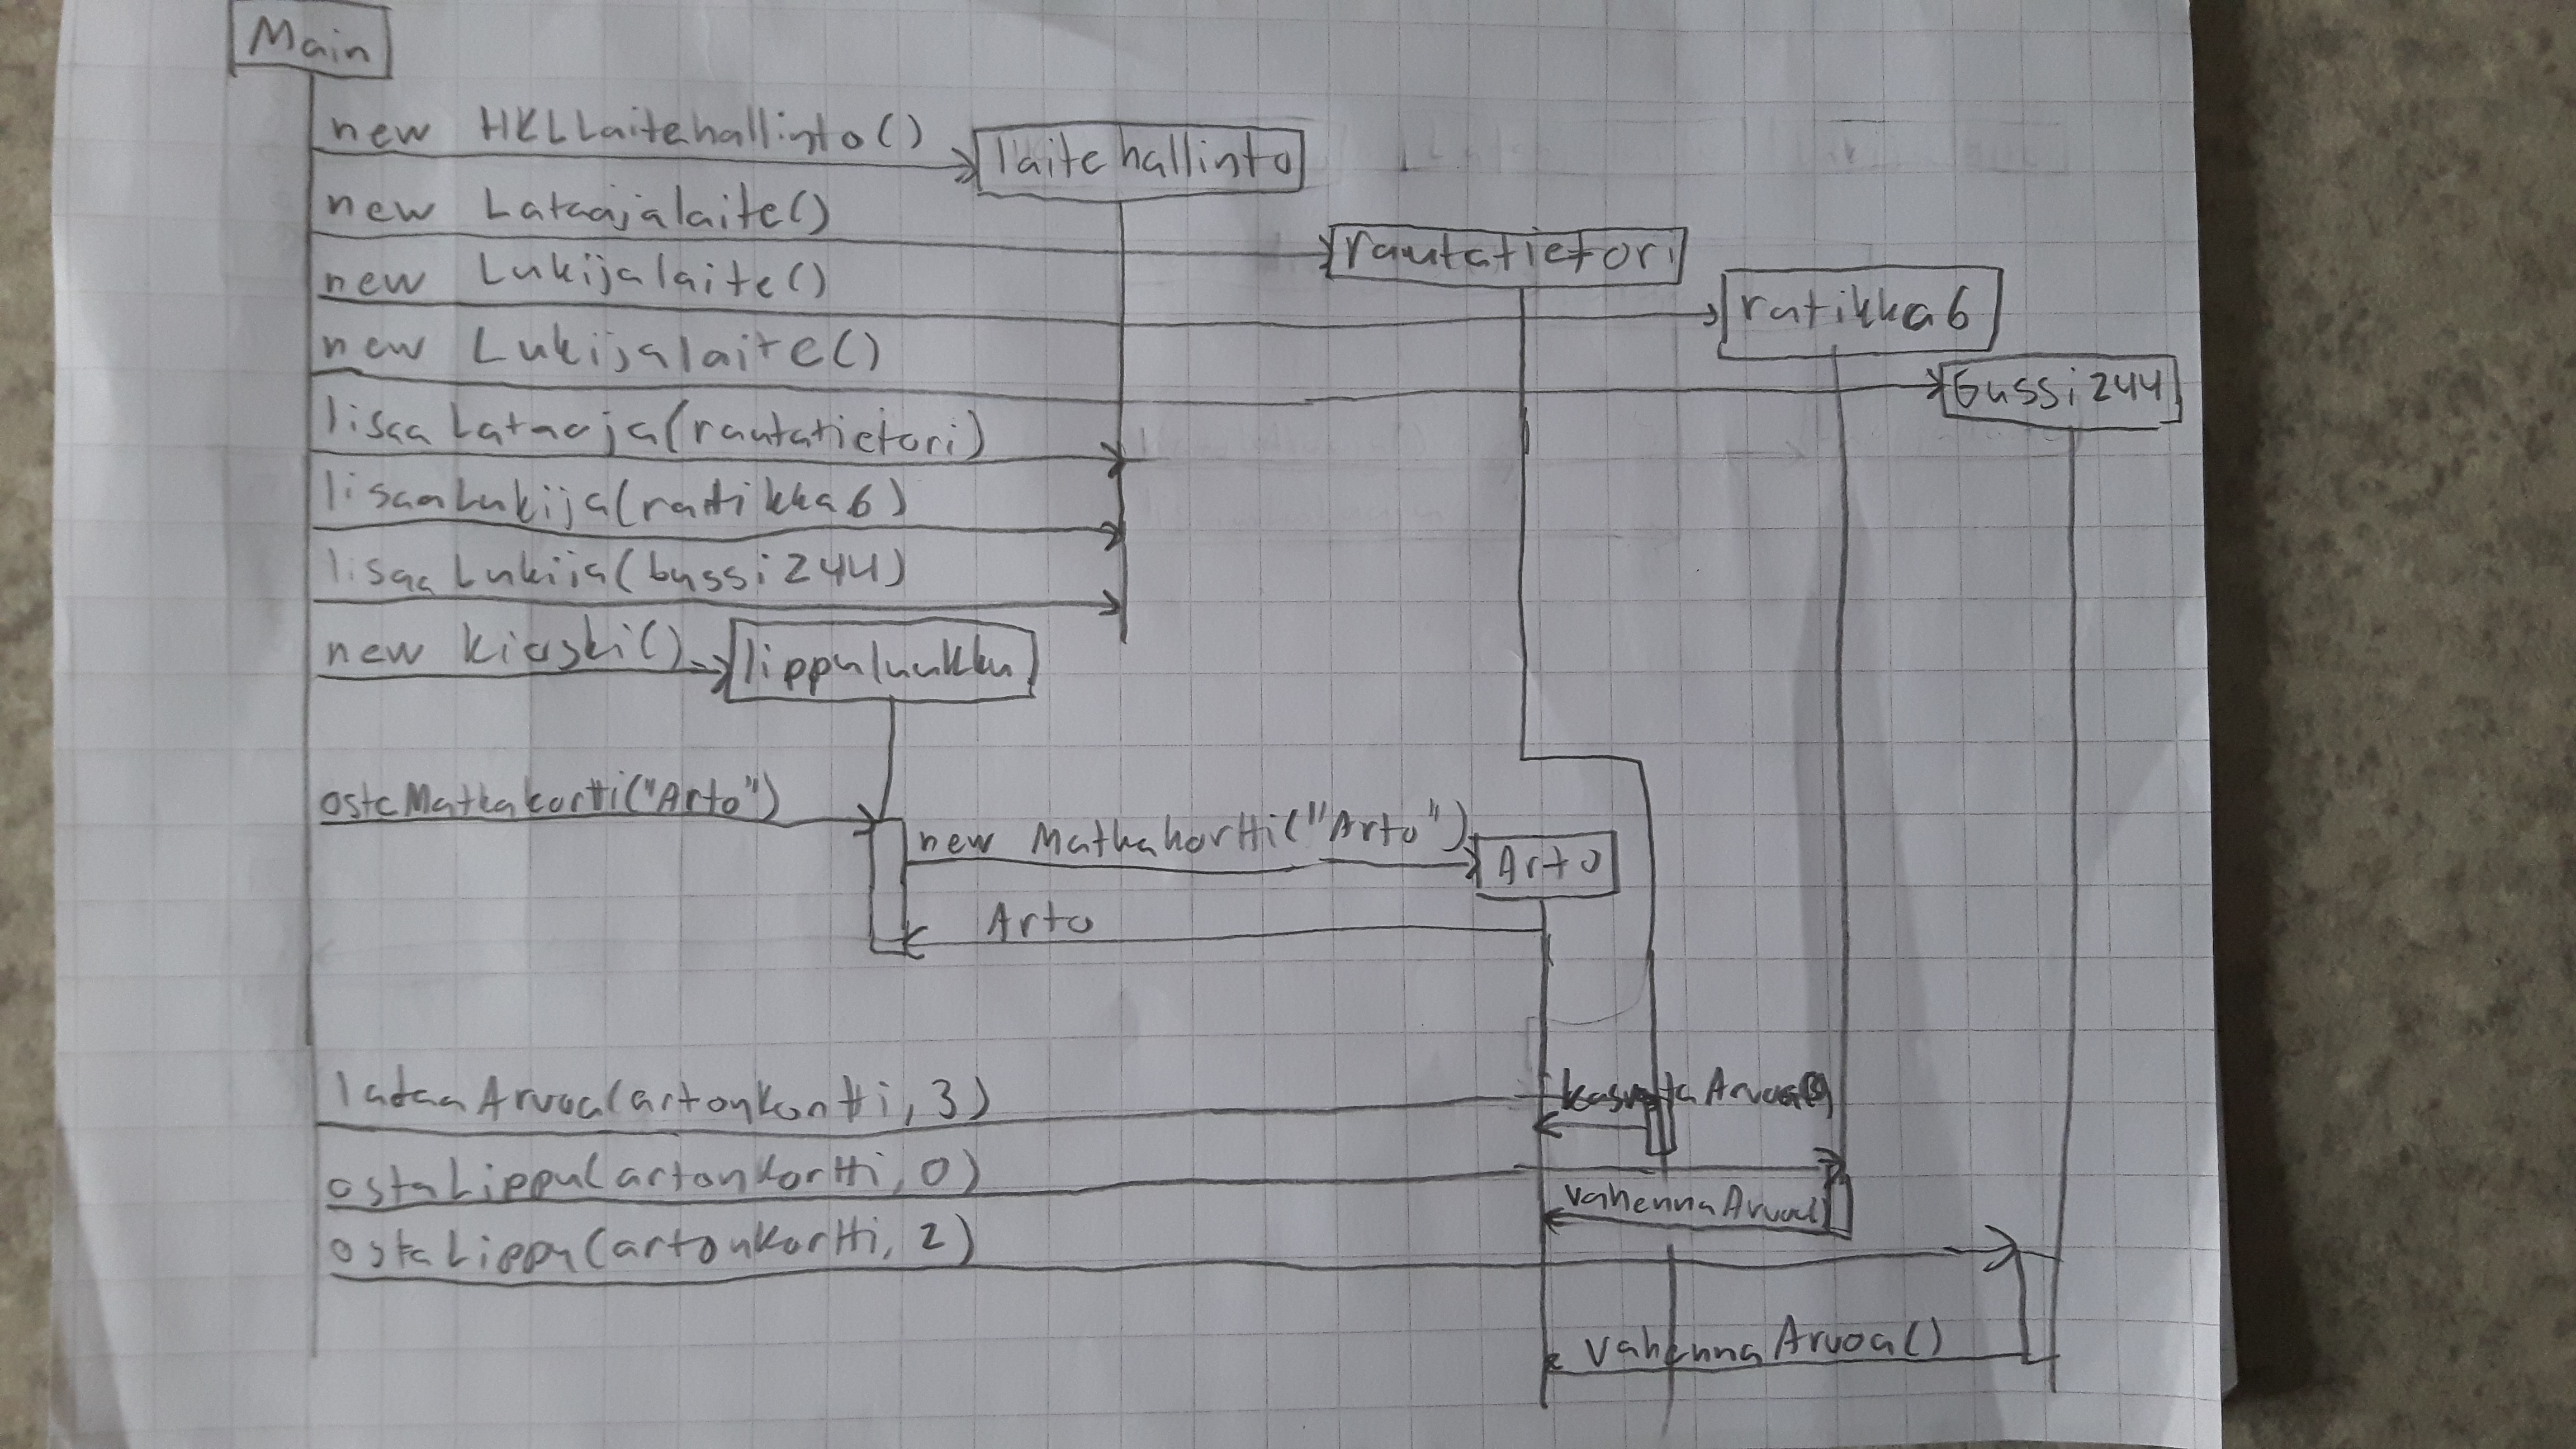 Main
new HKLLaitehallinto()
laitehallinto
new Lataajalaite()
rautatietori
new Lukijalaite()
ratikka6
new Lukijalaite()
bussi244
lisaaLataaja(rautatietori)
lisaaLukija(ratikka6)
lisaaLukija(bussi244)
new Kioski()
lippuluukku
ostaMatkakortti("Arto")
new Matkakortti("Arto")
Arto
Arto
lataaArvoa(artonKortti, 3)
kasvataArvoa(3)
ostaLippu(artonKortti, 0)
vahennaArvoa()
ostaLippu(artonKortti, 2)
vahennaArvoa()